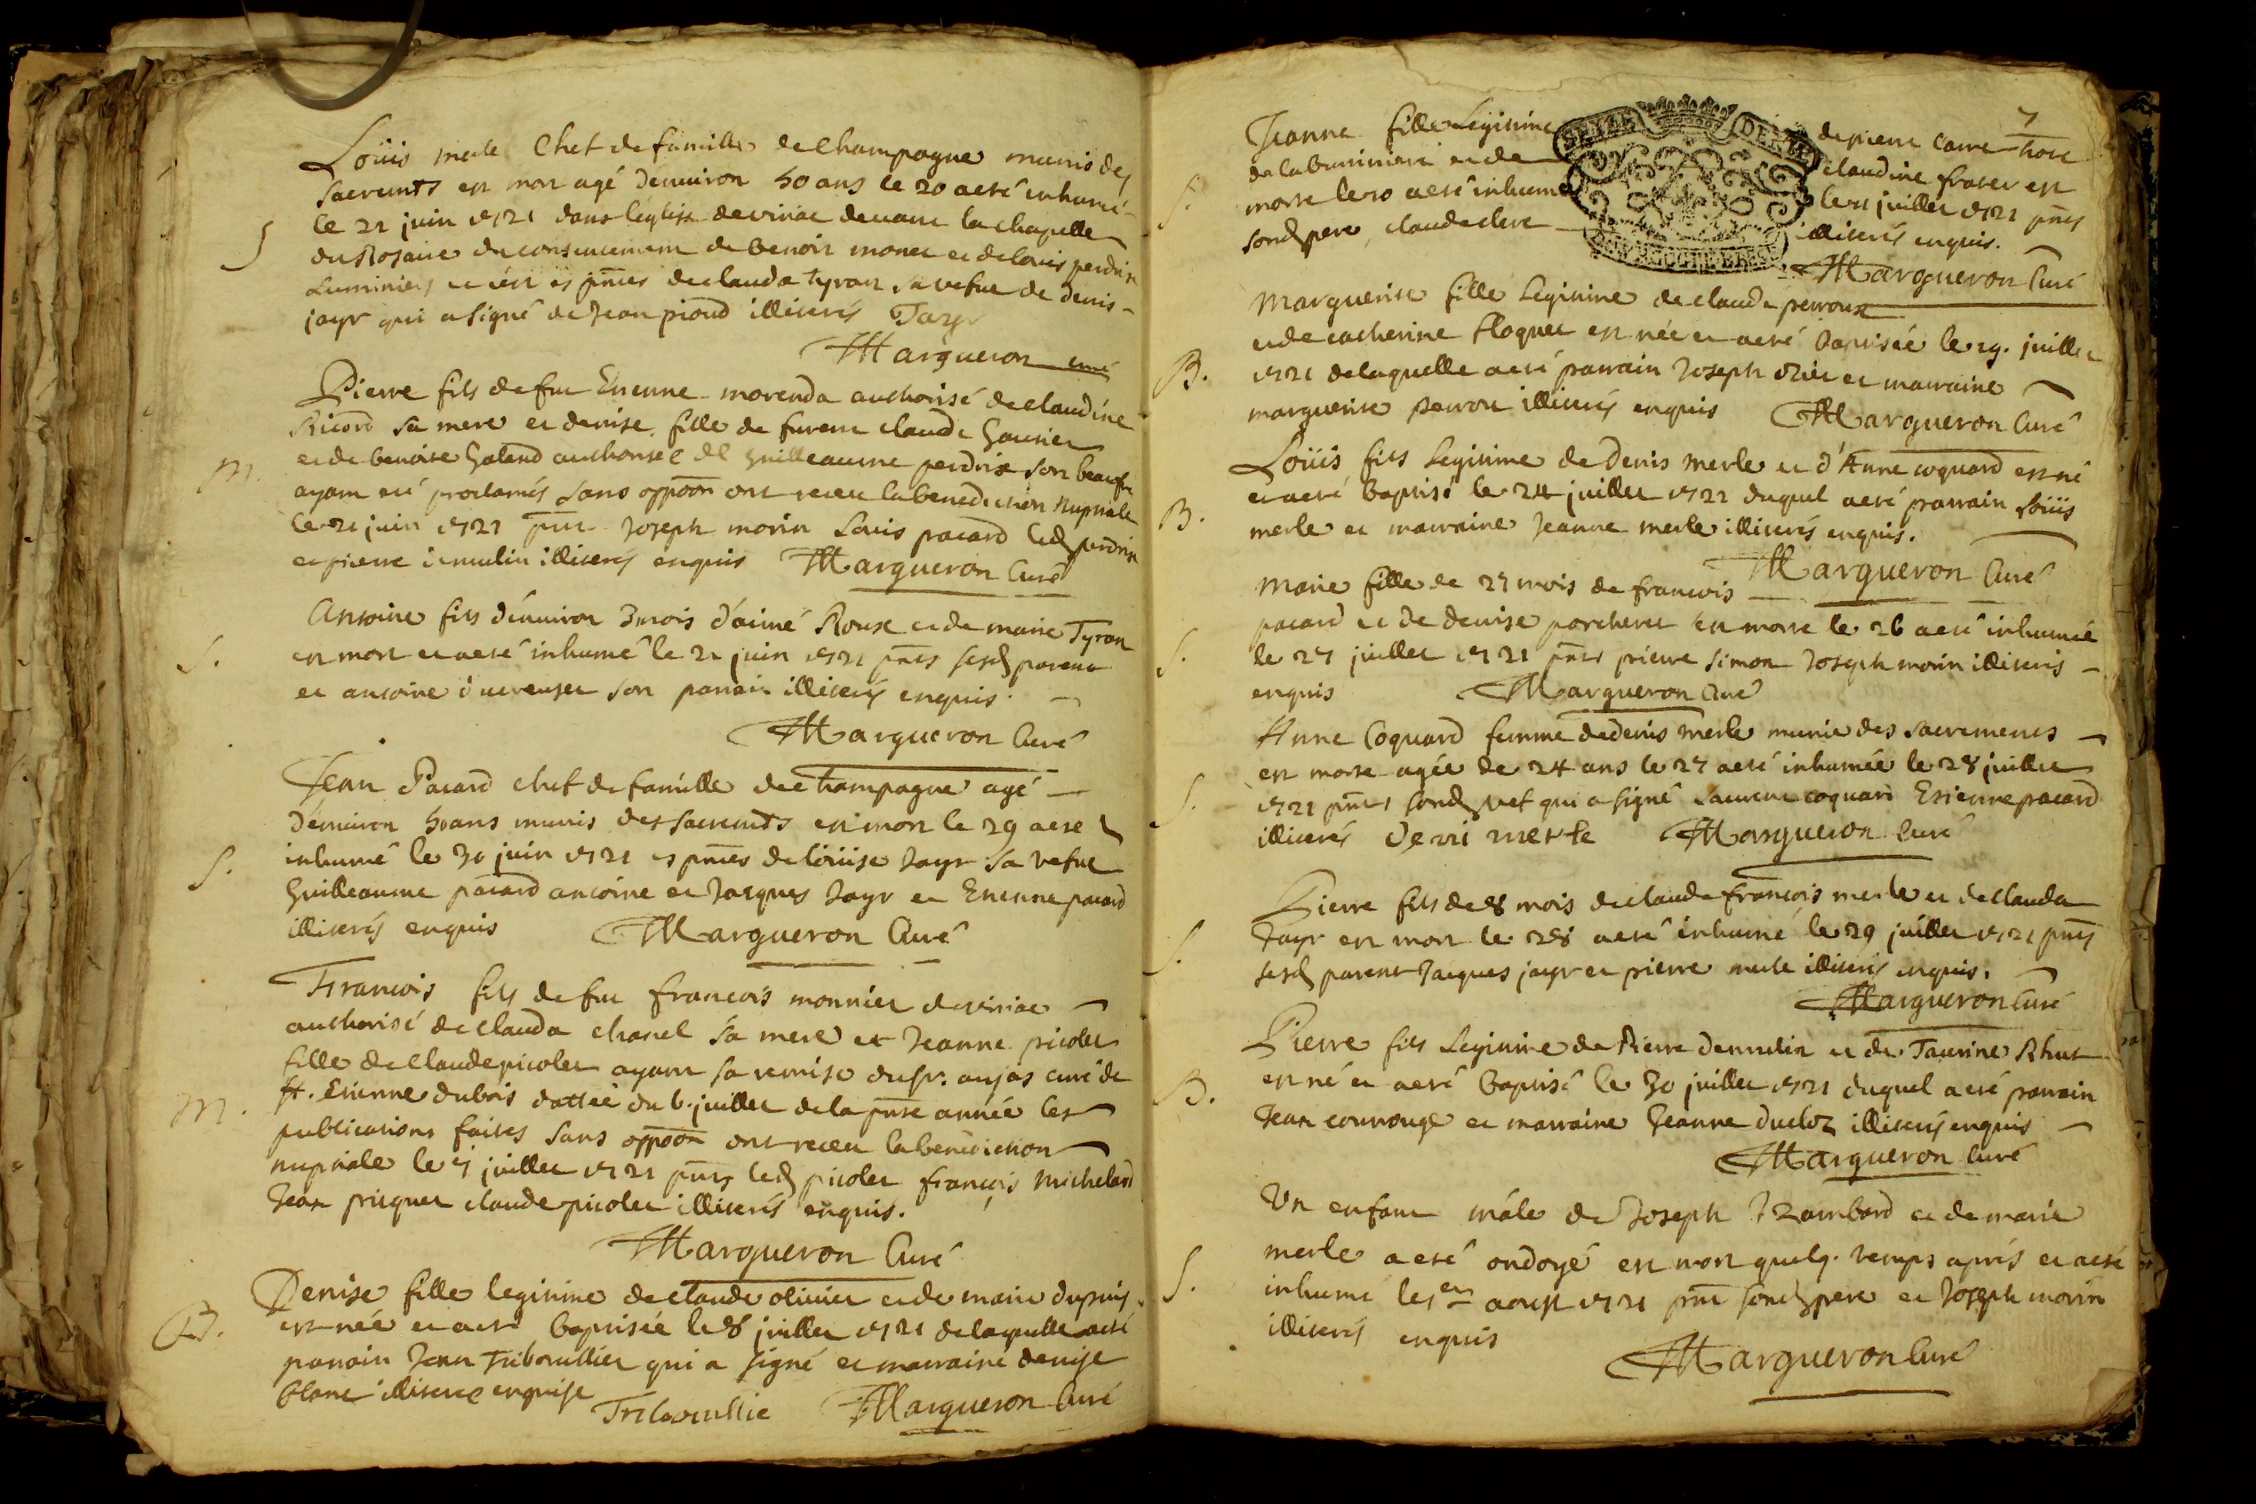 Loüis merle Chef de famille de Champagne munis des
sacremts est mort agé denuiron 50 ans le 20 a esté inhumé
S le 21 juin 1721 dans l'église de viriac deuant la chapelle
du Rosaire du consentement de benoit monet et de louis perdrix
Luminiers et ce es pntes de clauda tyran sa vefue de denis
jayr qui a signé de Jean pioud illiterés Jayr
Margueron curé
Pierre fils de feu Etienne morenda authorisé de claudine
Ricord sa mere et denise fille de furent claude
M. et de benoite Galand authorisée de guilleaume perdrix son beaufre
ayant été proclamés sans oppoôn ont receu la benediction nuptiale
le 21 juin 1721 pnt Joseph morin Louis pacard led perdrix
et pierre demulin illiterés enquis Margueron Curé
Antoine fils dénuiron 3 mois d'aimé Roux et de marie Tyran
S. est mort et a esté inhumé le 21 juin 1721 pnts sesd parent
et antoine son parrain illiterés enquis.
Margueron Curé
Jean Pacard chef de famille de Champagne agé
dénuiron 50 ans munis des sacremts est mort le 29 a esté
S. inhumé le 30 juin 1721 es pntes de loüise Jayr sa vefue
Guilleaume pacard antoine et Jacques Jayr et Etienne pacard
illiterés enquis Margueron Curé
Francois fils de feu francois monnier de viriac
authorisé de clauda chanel sa mere et Jeanne picolet
fille de claude picolet ayant sa remise du sr. aujas curé de
M. St. Etienne dubois dattée du 6. juillet de la pnte année les
publications faites sans oppoôn ont receu la benediction
nuptiale le 7 juillet 1721 pnts led picolet françois michelard
Jean priquet claude picolet illiterés enquis.
Margueron Curé
Denise fille legitime de claude oliuier et de marie dupuis
B. est née et a esté baptisée le 8 juillet 1721 de laquelle a eté
parrain Jean Tribouillier qui a signé et marraine denise
blanc illiterée enquise Tribouillie Margueron Curé
7
Jeanne fille Legitime de pierre carre
de la et de claudine frater est
S. morte le 10 a esté inhumée le 11 juillet 1721 pnts
sond pere, claude clere illiterés enquis.
Margueron Curé
Marguerite fille Legitime de claude perroux
et de catherine floquet est née et a eté baptisée le 19. juillet
B. 1721 de laquelle a eté parrain Joseph et marraine
marguerite illiterés enquis Margueron Curé
Loüis fils Legitime de Denis merle et d'Anne coquard est né
B. et a eté baptisé le 24 juillet 1721 duquel a eté parrain Loüis
merle et marraine Jeanne merle illiterés enquis.
Margueron Curé
Marie fille de 27 mois de francois
pacard et de denise porcheret est morte le 26 a esté inhumée
S. le 27 juillet 1721 pnts pierre simon Joseph morin illiterés
enquis Margueron Curé
Anne Coquard femme de denis merle munie des sacrements
est morte agée de 24 ans le 27 a eté inhumée le 28 juillet
S. 1721 pnts sond vef qui a signé Laurent coquard Etienne pacard
illiterés Deni merle Margueron Curé
Pierre fils de 8 mois de claude françois merle et de clauda
S. Jayr est mort le 28 a esté inhumé le 29 juillet 1721 pnts
sesd parent Jacques jayr et pierre merle illiterés enquis.
Margueron Curé
Pierre fils Legitime de Pierre demulin et de Taurine
B. est né et a esté baptisé le 30 juillet 1721 duquel a eté parrain
Jean et marraine Jeanne ducloz illiterés enquis
Margueron Curé
Un enfant mâle de Joseph et de marie
merle a esté ondoyé est mort quelq. temps après et a eté
S. inhumé le 1er aoust 1721 pnt sond pere et Joseph morin
illiterés enquis
Margueron Curé